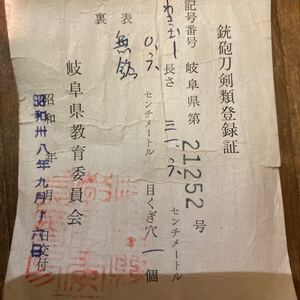 銃砲刀剣類登録証
記号番号 岐阜県第 21252 号
わきざし 長さ 三一.六 センチメートル
〇.六 センチメートル 目くぎ穴 一 個
表 無銘
裏
岐阜県教育委員会
昭和 年 月 日交付
昭和卅八年九月十六日